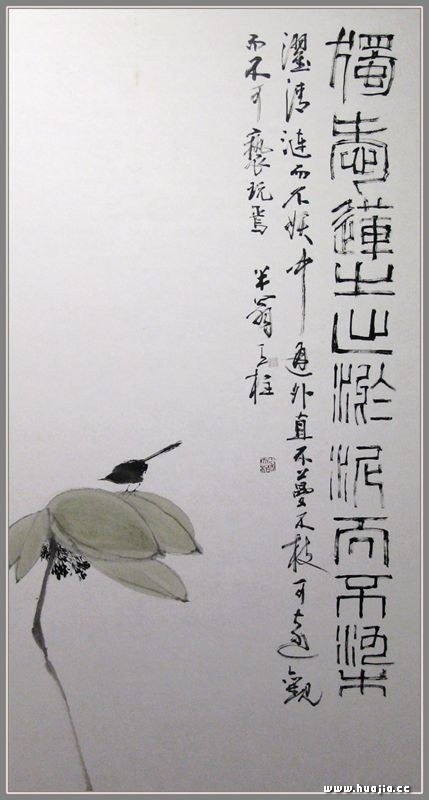 獨愛蓮之出淤泥而不染
濯清涟而不妖中通外直不蔓不枝可遠觀
而不可褻玩焉 翁 柱
www.huajia.cc